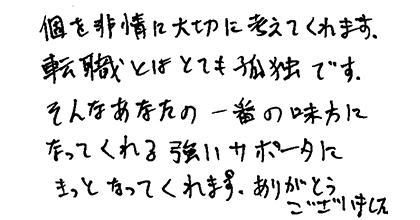 個を非情に大切に考えてくれます.
転職とはとても孤独です.
そんなあなたの一番の味方に
なってくれる強いサポータに
きっとなってくれます。ありがとう
ございました